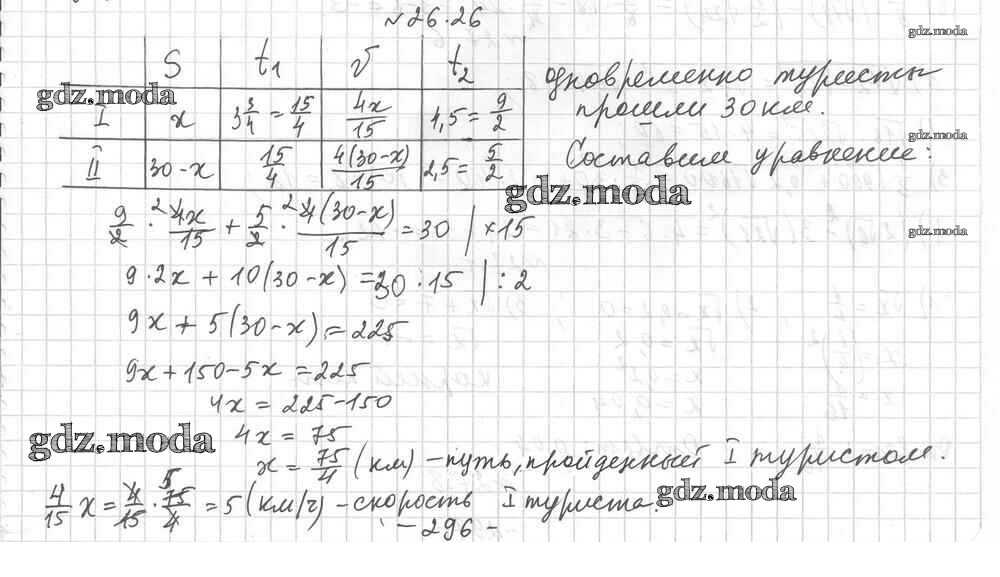 №26.26
S t₁ V t₂
I x 3 3/4 = 15/4 4x/15 4,5 = 9/2
II 30-x 15/4 4(30-x)/15 2,5 = 5/2
одновременно туристы
прошли 30 км.
Составим уравнение:
9/2 · ²4x/15 + 5/2 · ²4(30-x)/15 = 30 | ×15
9·2x + 10(30-x) = 30·15 | :2
9x + 5(30-x) = 225
9x+150-5x = 225
4x = 225-150
4x = 75
x = 75/4 (км) - путь, пройденный I туристом.
4/15 x = 4/15 · 75/4 = 5 (км/ч) - скорость I туриста.
- 296 -
gdz.moda
gdz.moda
gdz.moda
gdz.moda
gdz.moda
gdz.moda
gdz.moda